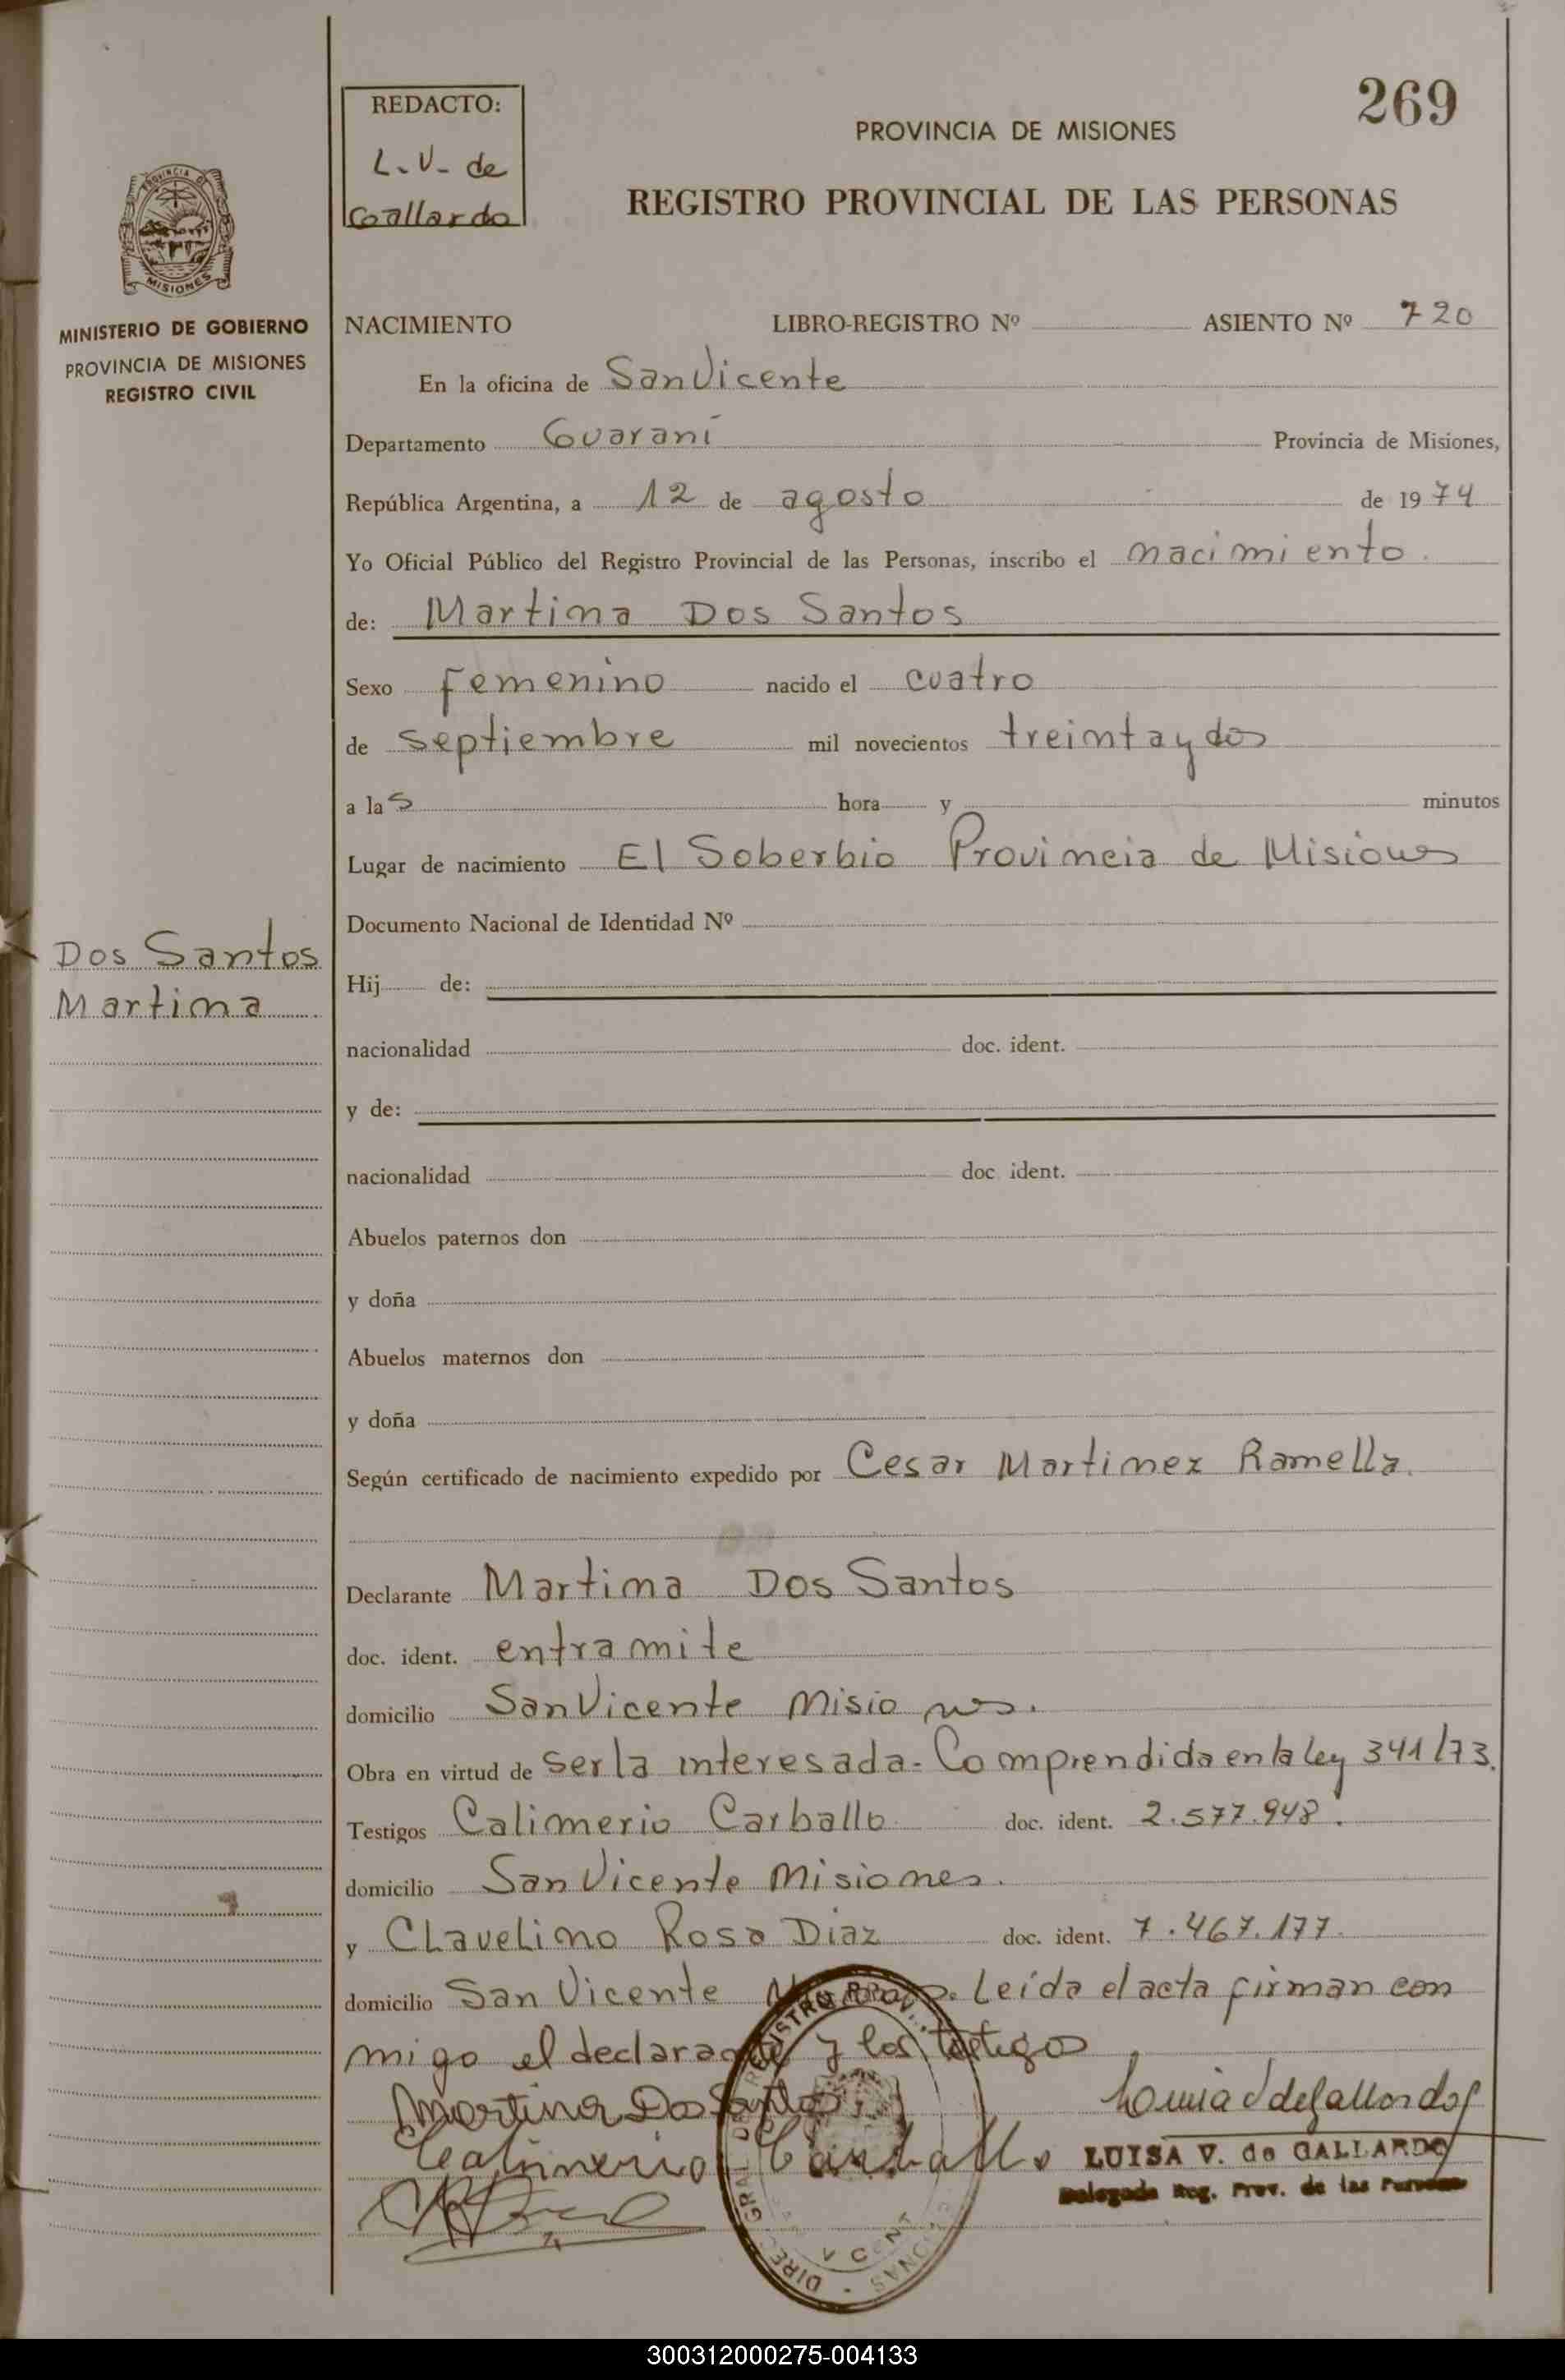 269
REDACTO:
L. V. de
Gallardo
PROVINCIA DE MISIONES
REGISTRO PROVINCIAL DE LAS PERSONAS
PROVINCIA DE
MISIONES
MINISTERIO DE GOBIERNO
PROVINCIA DE MISIONES
REGISTRO CIVIL
NACIMIENTO LIBRO-REGISTRO Nº ASIENTO Nº 720
En la oficina de San Vicente
Departamento Guaraní Provincia de Misiones,
República Argentina, a 12 de agosto de 1974
Yo Oficial Público del Registro Provincial de las Personas, inscribo el nacimiento.
de: Martina Dos Santos
Sexo femenino nacido el cuatro
de septiembre mil novecientos treinta y dos
a las hora y minutos
Lugar de nacimiento El Soberbio Provincia de Misiones
Documento Nacional de Identidad Nº
Dos Santos
Martina
Hij de:
nacionalidad doc. ident.
y de:
nacionalidad doc. ident.
Abuelos paternos don
y doña
Abuelos maternos don
y doña
Según certificado de nacimiento expedido por Cesar Martinez Ramella.
Declarante Martina Dos Santos
doc. ident. entramite
domicilio San Vicente Misiones.
Obra en virtud de ser la interesada. Comprendida en la ley 341/73.
Testigos Calimerio Carballo doc. ident. 2.577.948.
domicilio San Vicente Misiones.
y Clavelino Rosa Diaz doc. ident. 7.467.177.
domicilio San Vicente Misiones. Leída el acta firman con
migo el declarante y los testigos
Martina Dos Santos
Calimerio Carballo
LUISA V. de GALLARDO
Delegada Reg. Prov. de las Personas
300312000275-004133